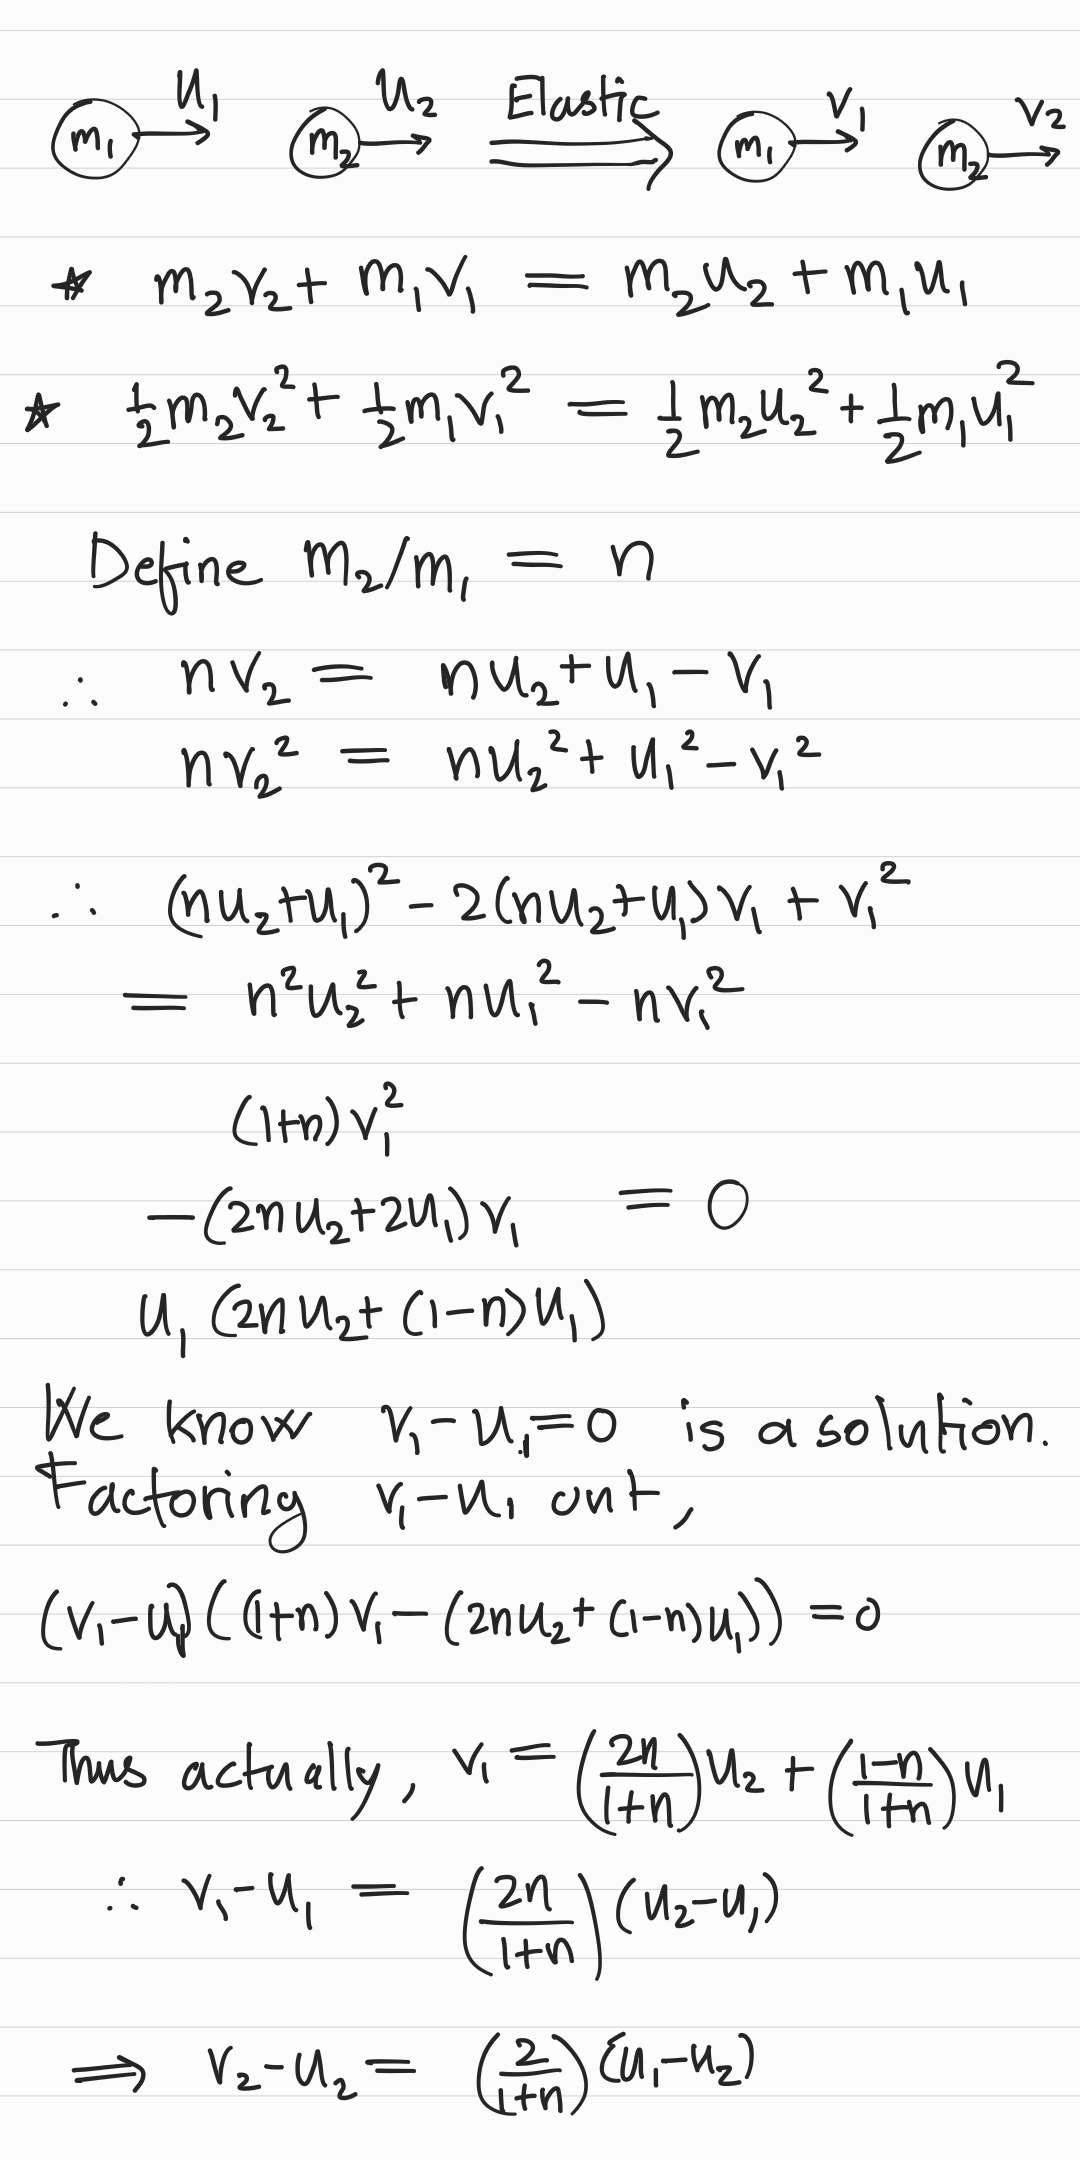 m₁ u₁ m₂ u₂ Elastic m₁ v₁ m₂ v₂
☆ m₂v₂ + m₁v₁ = m₂u₂ + m₁u₁
☆ ½m₂v₂² + ½m₁v₁² = ½m₂u₂² + ½m₁u₁²
Define m₂/m₁ = n
∴ nv₂ = nu₂ + u₁ - v₁
nv₂² = nu₂² + u₁² - v₁²
∴ (nu₂+u₁)² - 2(nu₂+u₁)v₁ + v₁²
= n²u₂² + nu₁² - nv₁²
(1+n)v₁²
-(2nu₂+2u₁)v₁ = 0
u₁(2nu₂+(1-n)u₁)
We know v₁-u₁=0 is a solution.
Factoring v₁-u₁ out,
(v₁-u₁)((1+n)v₁-(2nu₂+(1-n)u₁))=0
Thus actually, v₁ = (2n/1+n)u₂ + (1-n/1+n)u₁
∴ v₁-u₁ = (2n/1+n)(u₂-u₁)
⟹ v₂-u₂ = (2/1+n)(u₁-u₂)